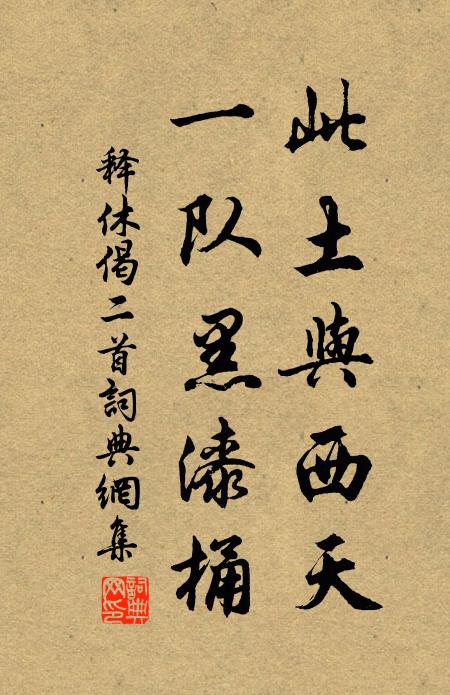 此土與西天
一队黑漆桶
释休偈二首詞典網集
詞典網印